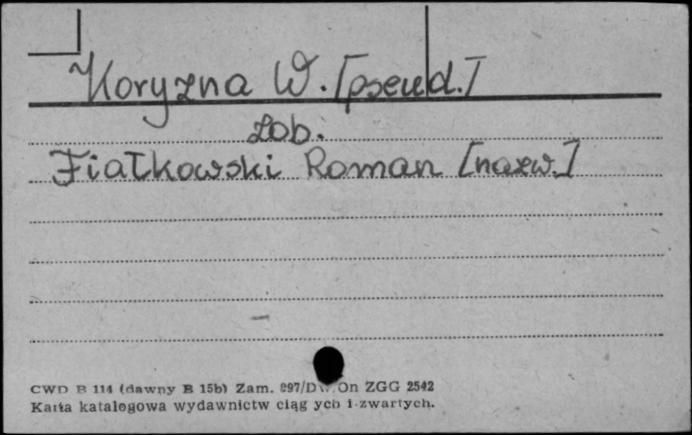 Koryzna W. [pseud.]
zob.
Fiałkowski Roman [nazw.]
CWD B 114 (dawny B 15b) Zam. 897/DW/On ZGG 2542
Karta katalogowa wydawnictw ciąg ych i zwartych.